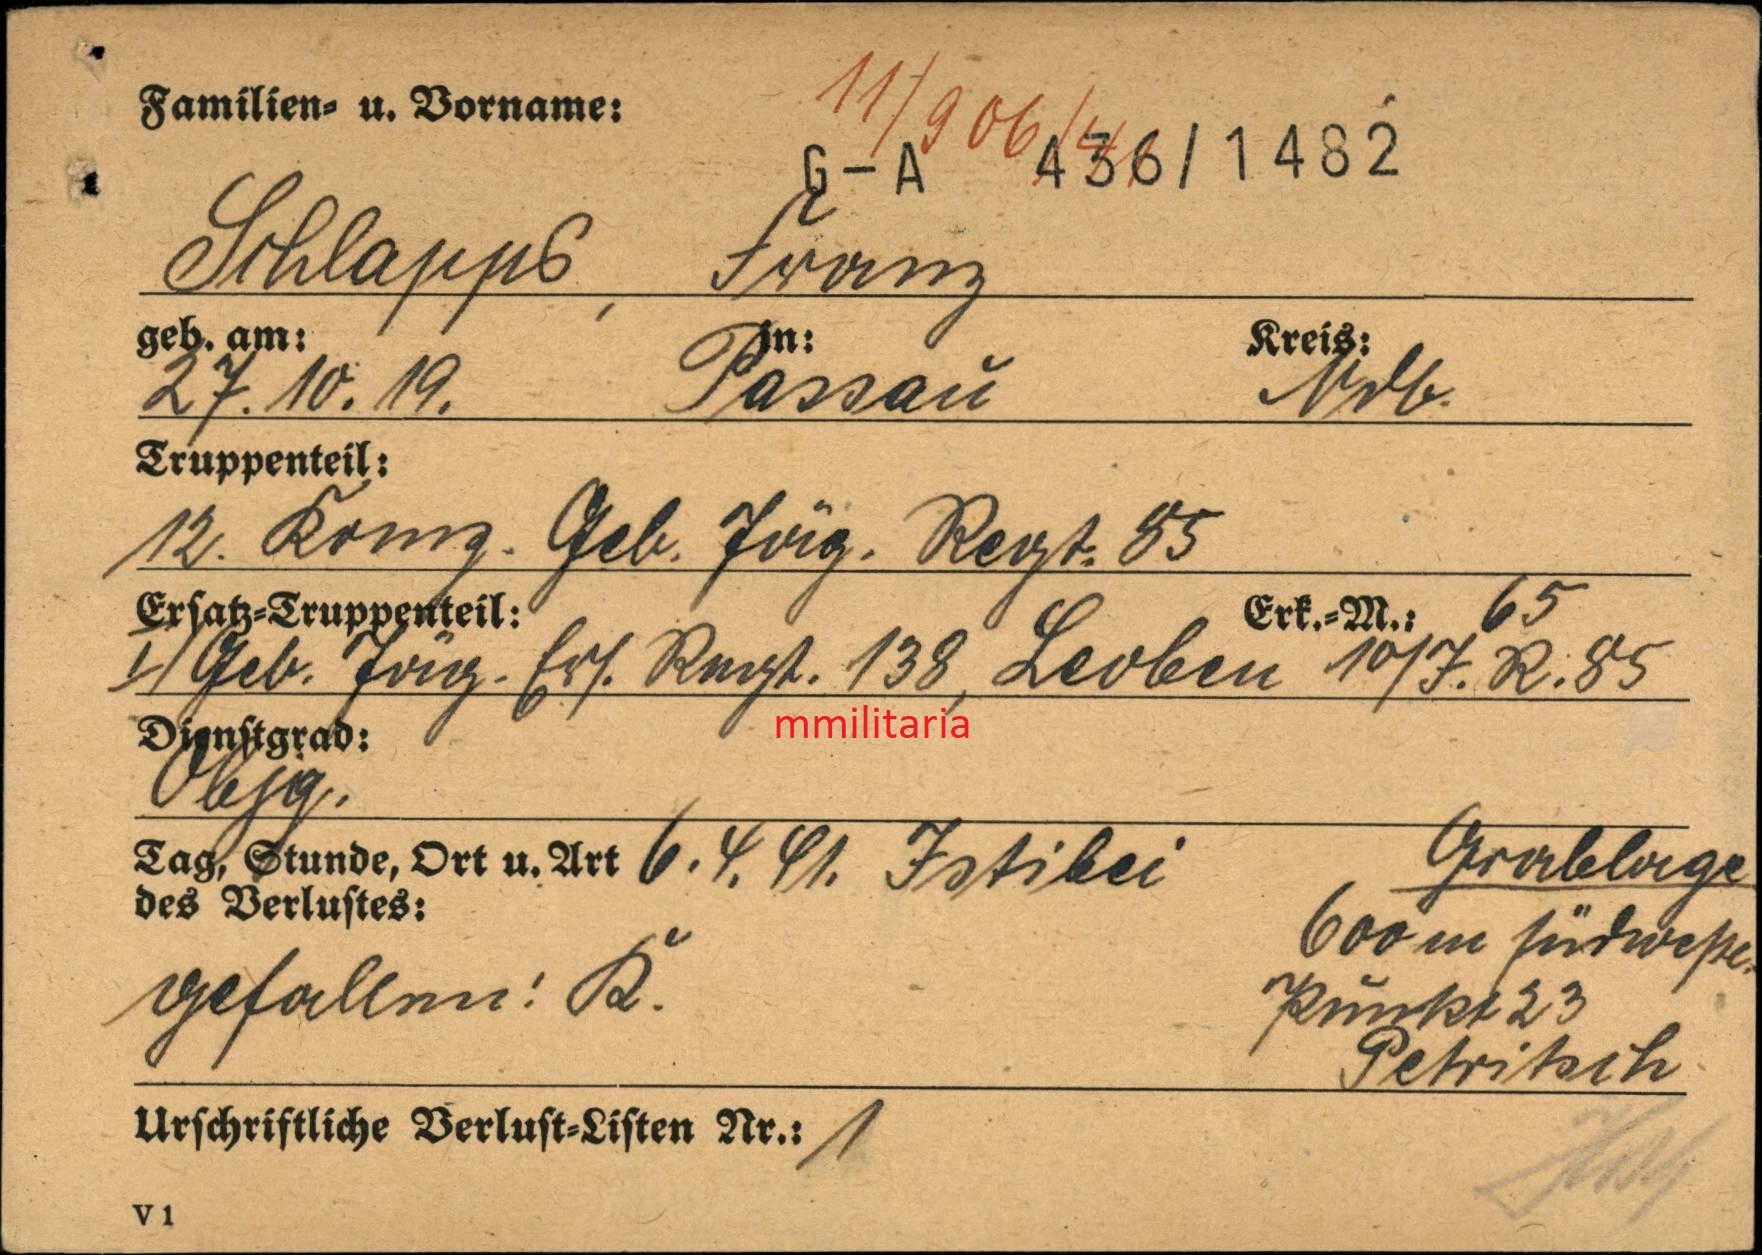 Familien- u. Vorname:
11/906/41
G-A 436/1482
Schlapps, Franz
geb. am: in: Kreis:
27. 10. 19. Passau Ndb.
Truppenteil:
12. Komp. Geb. Jäg. Regt. 85
Ersatz-Truppenteil: Erk.-M.: 65
I/ Geb. Jäg. Ers. Regt. 138, Leoben 10/J. R. 85
mmilitaria
Dienstgrad:
Objg.
Tag, Stunde, Ort u. Art 6. 4. 41. Istibei Grablage
des Verlustes:
600 m südwestl.
gefallen! K.
Punkt 23
Petritsch
Urschriftliche Verlust-Listen Nr.: 1
V 1